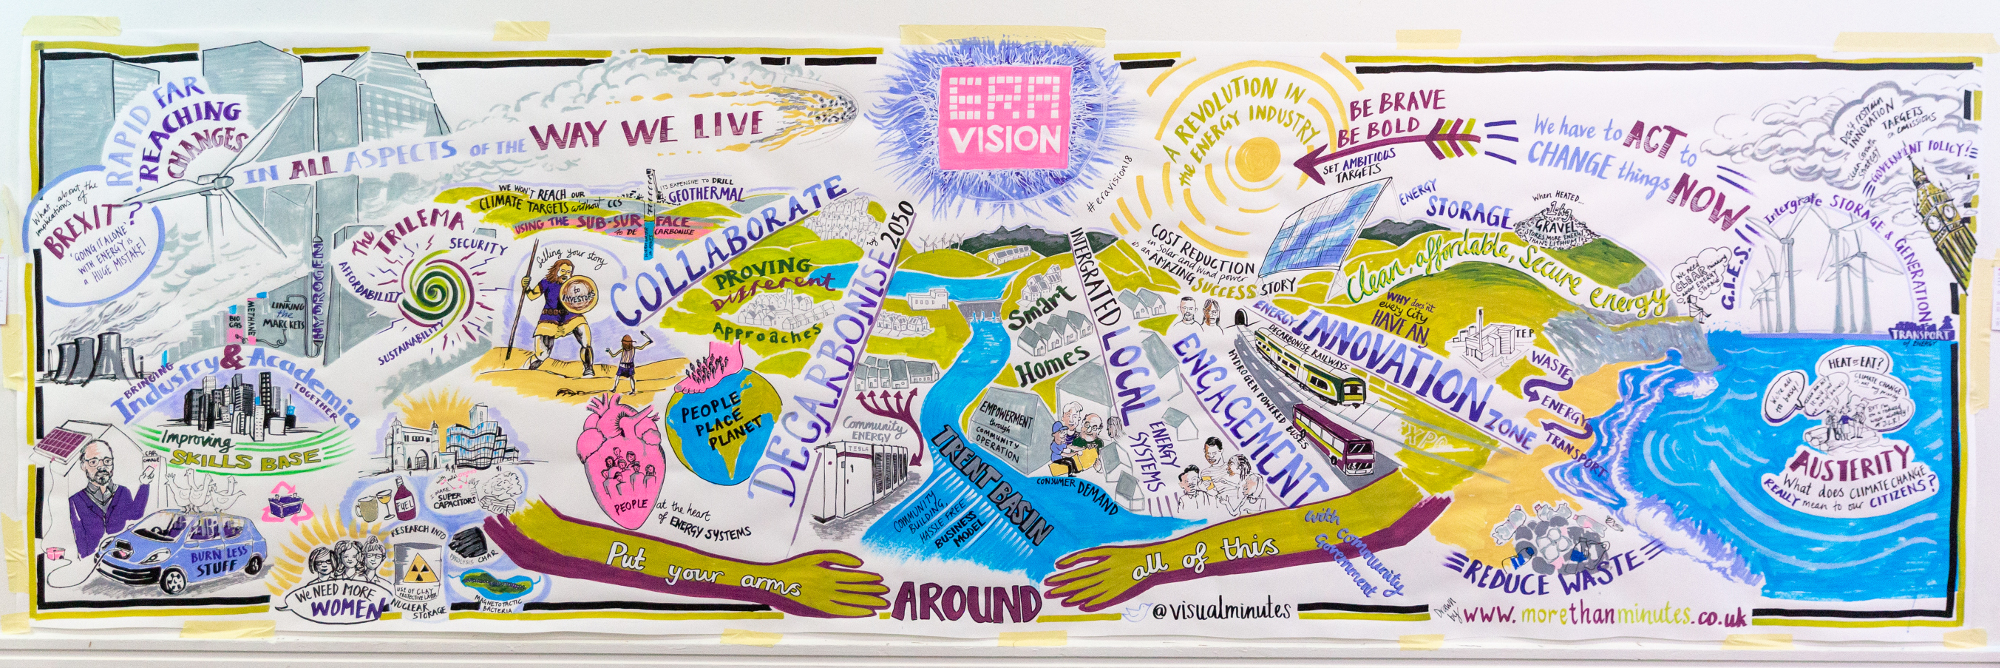 RAPID FAR
REACHING
CHANGES
IN ALL ASPECTS OF THE WAY WE LIVE
What about the
implications of
BREXIT?
'GOING IT ALONE'
WITH ENERGY IS
A HUGE MISTAKE!
THE TRILEMA
SECURITY
AFFORDABILITY
SUSTAINABILITY
HYDROGEN
BIO
GAS
METHANE
LINKING
the
MARKETS
BRINGING
Industry & Academia
TOGETHER
Improving
SKILLS BASE
BURN LESS
STUFF
WE NEED MORE
WOMEN
FUEL
SUPER
CAPACITORS
RESEARCH INTO
CHAR
USE OF CLAY
NUCLEAR
STORAGE
MAGNETOTACTIC
BACTERIA
WE WON'T REACH OUR
CLIMATE TARGETS without CCS
IT'S EXPENSIVE TO DRILL
GEOTHERMAL
USING THE SUB-SURFACE
TO DECARBONISE
telling your story
to
INVESTORS
COLLABORATE
PROVING
Different
Approaches
PEOPLE
PLACE
PLANET
PEOPLE
at the heart
of ENERGY SYSTEMS
DECARBONISE by 2050
ERA
VISION
#eravision18
Community
ENERGY
TESLA
Smart
Homes
EMPOWERMENT
through
COMMUNITY
OPERATION
TRENT BASIN
COMMUNITY
BUILDING,
HASSLE FREE
BUSINESS
MODEL
CONSUMER DEMAND
INTERGRATED
LOCAL
ENERGY
SYSTEMS
ENGAGEMENT
A REVOLUTION IN
the ENERGY INDUSTRY
COST REDUCTION
in Solar and Wind power
is an AMAZING SUCCESS STORY
BE BRAVE
BE BOLD
SET AMBITIOUS
TARGETS
We have to ACT to
CHANGE things
NOW
ENERGY
STORAGE
When HEATED...
GRAVEL
STORES MORE ENERGY
THAN LITHIUM
Clean, affordable, Secure energy
WHY does'nt
every City
HAVE AN,
ENERGY
INNOVATION
ZONE
DECARBONISE RAILWAYS
HYDROGEN POWERED BUSES
TEP
WASTE
ENERGY
TRANSPORT
G.I.E.S.
Intergrate STORAGE & GENERATION
INNOVATION
TARGETS
GOVERNMENT POLICY?
TRANSPORT
of ENERGY
HEAT or EAT?
CLIMATE CHANGE
AUSTERITY
What does CLIMATE CHANGE
REALLY mean to our CITIZENS?
REDUCE WASTE
Put your arms
AROUND
all of this
with Community
Government
@visualminutes
Drawn
by
www.morethanminutes.co.uk